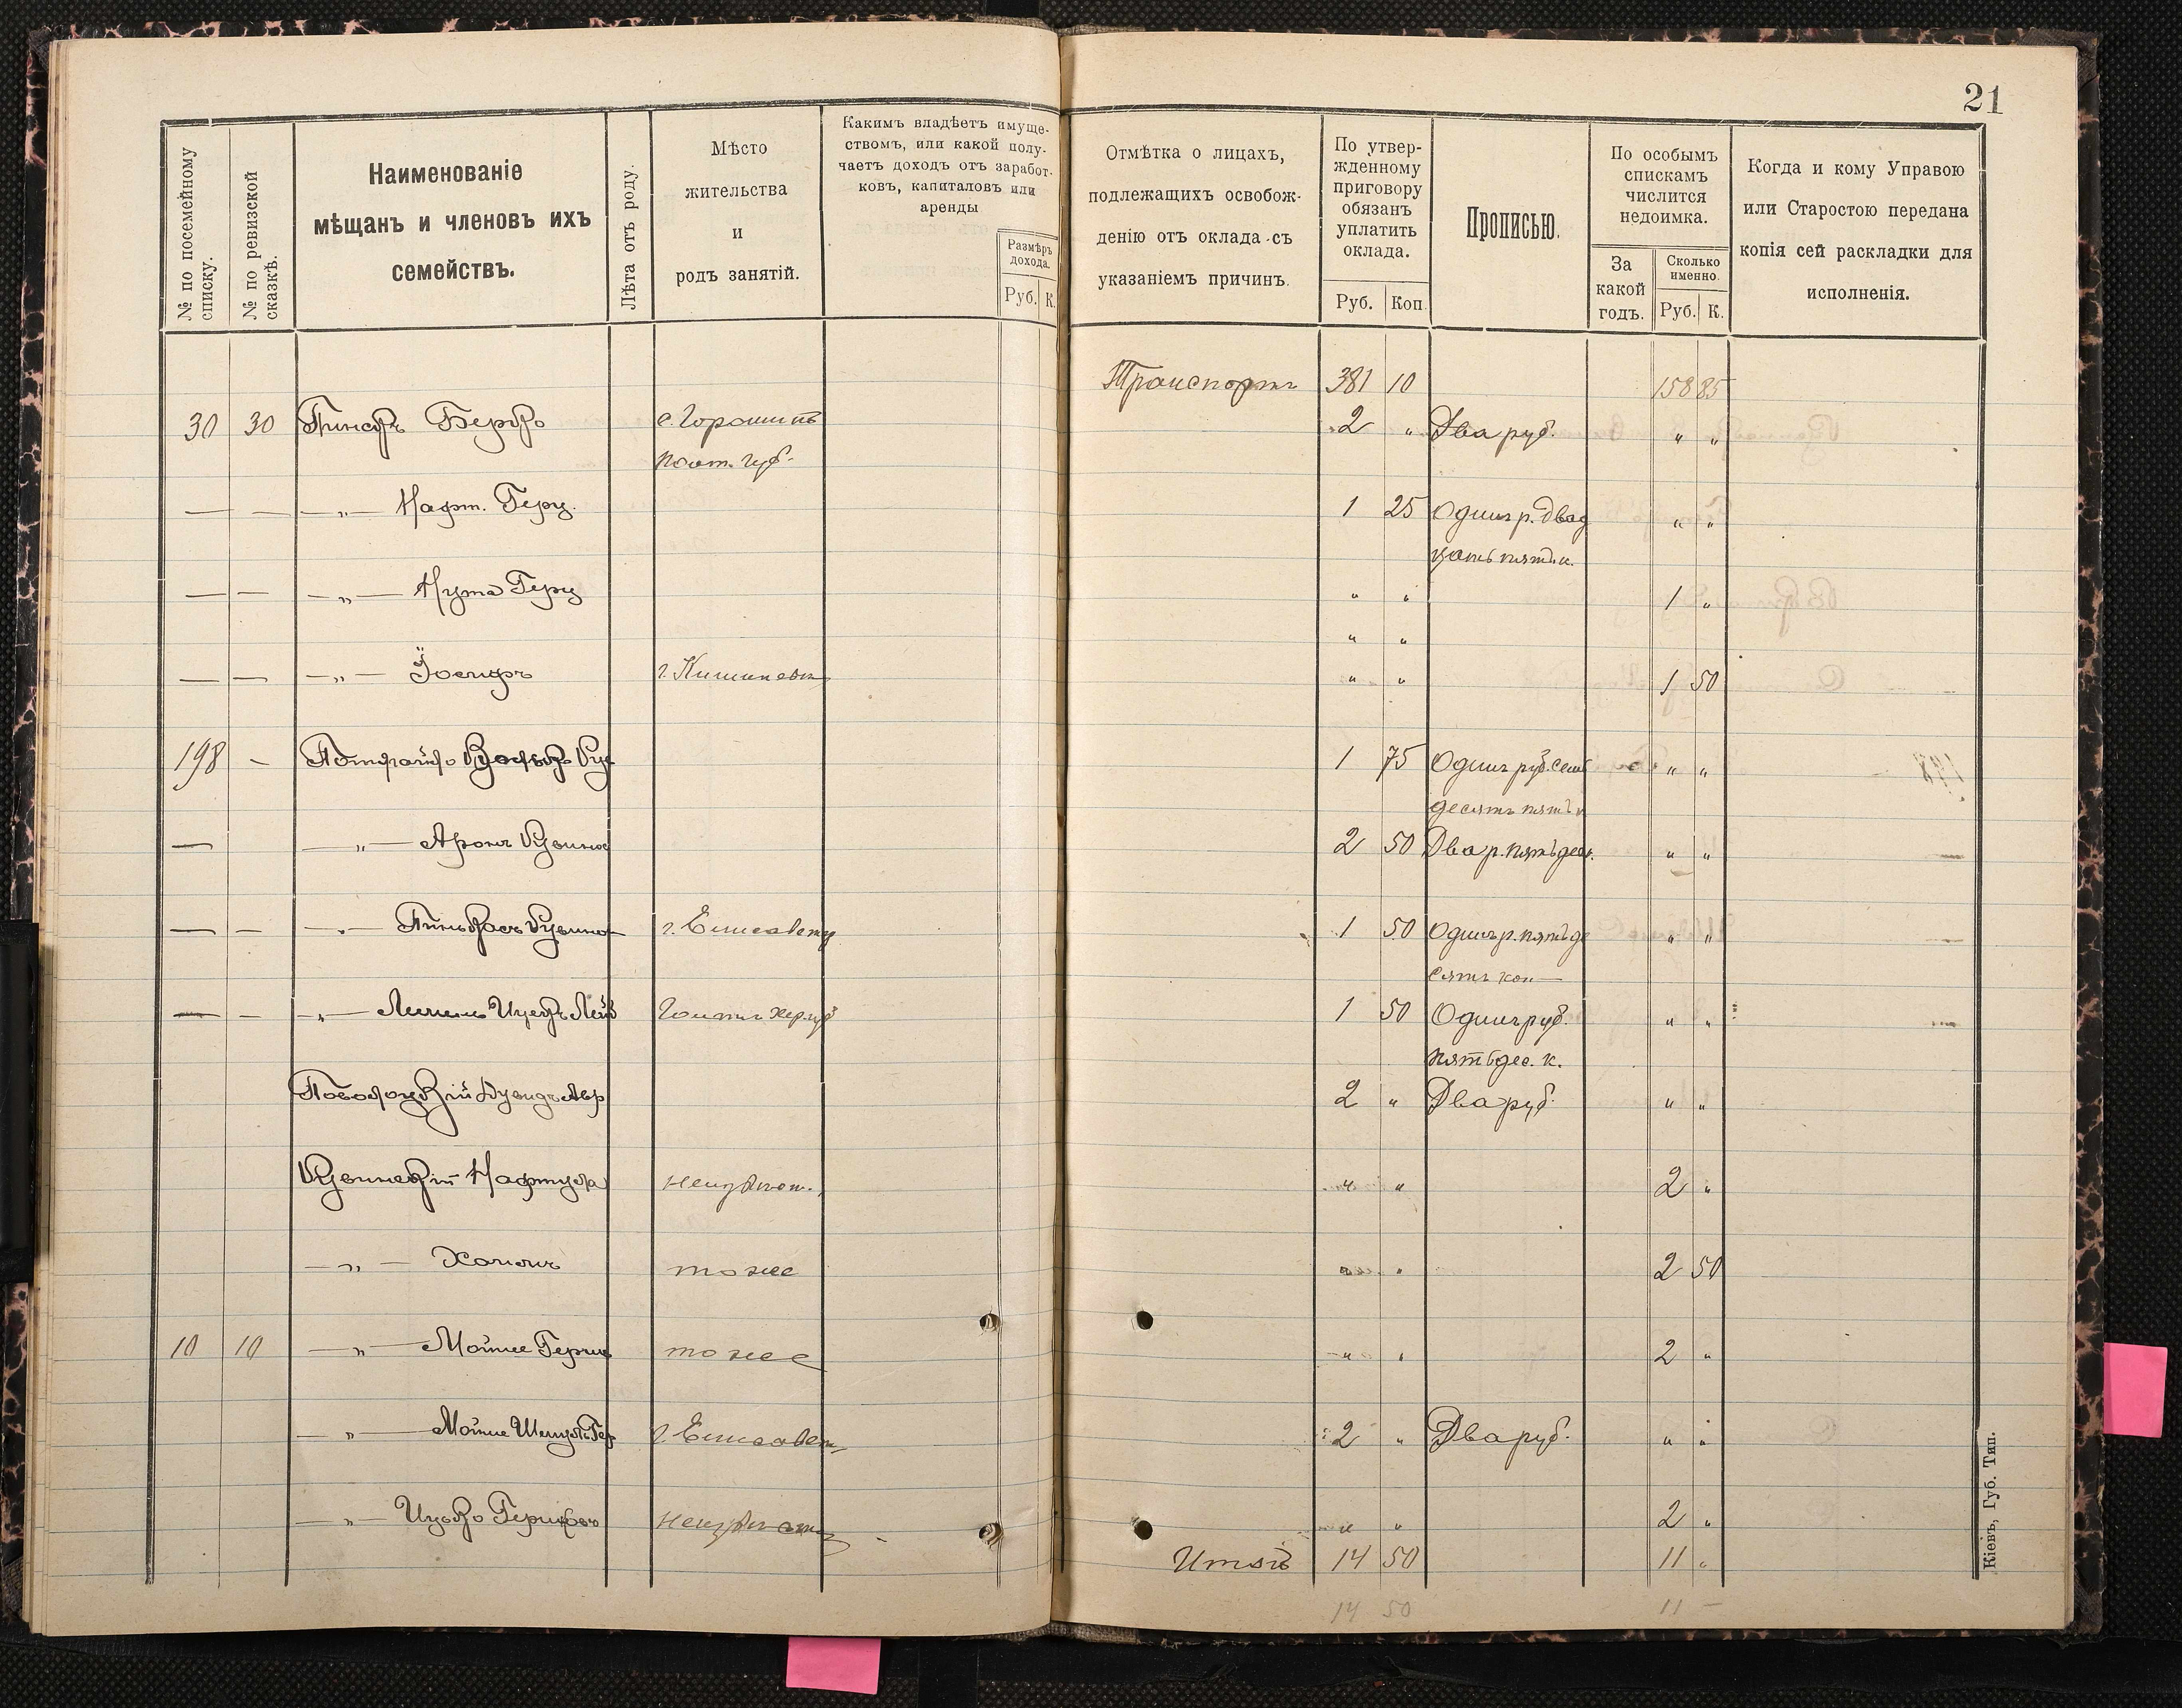 21
№ по посемейному списку.
№ по ревизской сказкѣ.
Наименованіе
мѣщанъ и членовъ ихъ
семействъ.
Лѣта отъ роду.
Мѣсто
жительства
и
родъ занятій.
Какимъ владѣетъ имуще-
ствомъ, или какой полу-
чаетъ доходъ отъ заработ-
ковъ, капиталовъ или
аренды
Размѣръ
дохода.
Руб. К.
Отмѣтка о лицахъ,
подлежащихъ освобож-
денію отъ оклада съ
указаніемъ причинъ.
По утвер-
жденному
приговору
обязанъ
уплатить
оклада.
Руб. Коп.
Прописью.
По особымъ
спискамъ
числится
недоимка.
За
какой
годъ.
Сколько
именно.
Руб. К.
Когда и кому Управою
или Старостою передана
копія сей раскладки для
исполненія.
Транспортъ 381 10 158 85
30 30 Пинскъ Берко с. Горошинъ 2 „ Два руб. „ „
Полт. губ.
— — —„— Нафт. Герц. 1 25 Одинъ р. двад „ „
цать пять к.
— — —„— Нута Герц „ „ 1 „
„ „
— — —„— Іосифъ г. Кишиневъ „ „ 1 50
198 — 1 75 Одинъ руб. семь „ „
десятъ пять к
— —„— Аронъ Рувинов 2 50 Два р. пятьдес. „ „
— — —„— Пинькасъ Рувинов г. Елисаветг 1 50 Одинъ р. пятьде „ „
сятъ коп —
— — —„— Ицекъ Лейб Голта Хер. губ 1 50 Одинъ руб. „ „
пятьдес. к.
Поволоцкій Дувидъ Авр 2 „ Два руб. „ „
Нафтула неизвѣстн. „ „ 2 „
—„— тоже „ „ 2 50
10 10 —„— Мойше Герш тоже „ „ 2 „
—„— Мойше Шмуль Гер г. Елисавет 2 „ Два руб. „ „
—„— Ицько Гершков неизвѣстн „ „ 2 „
Итого 14 50 11 „
14 50 11 —
Кіевъ, Губ. Тип.